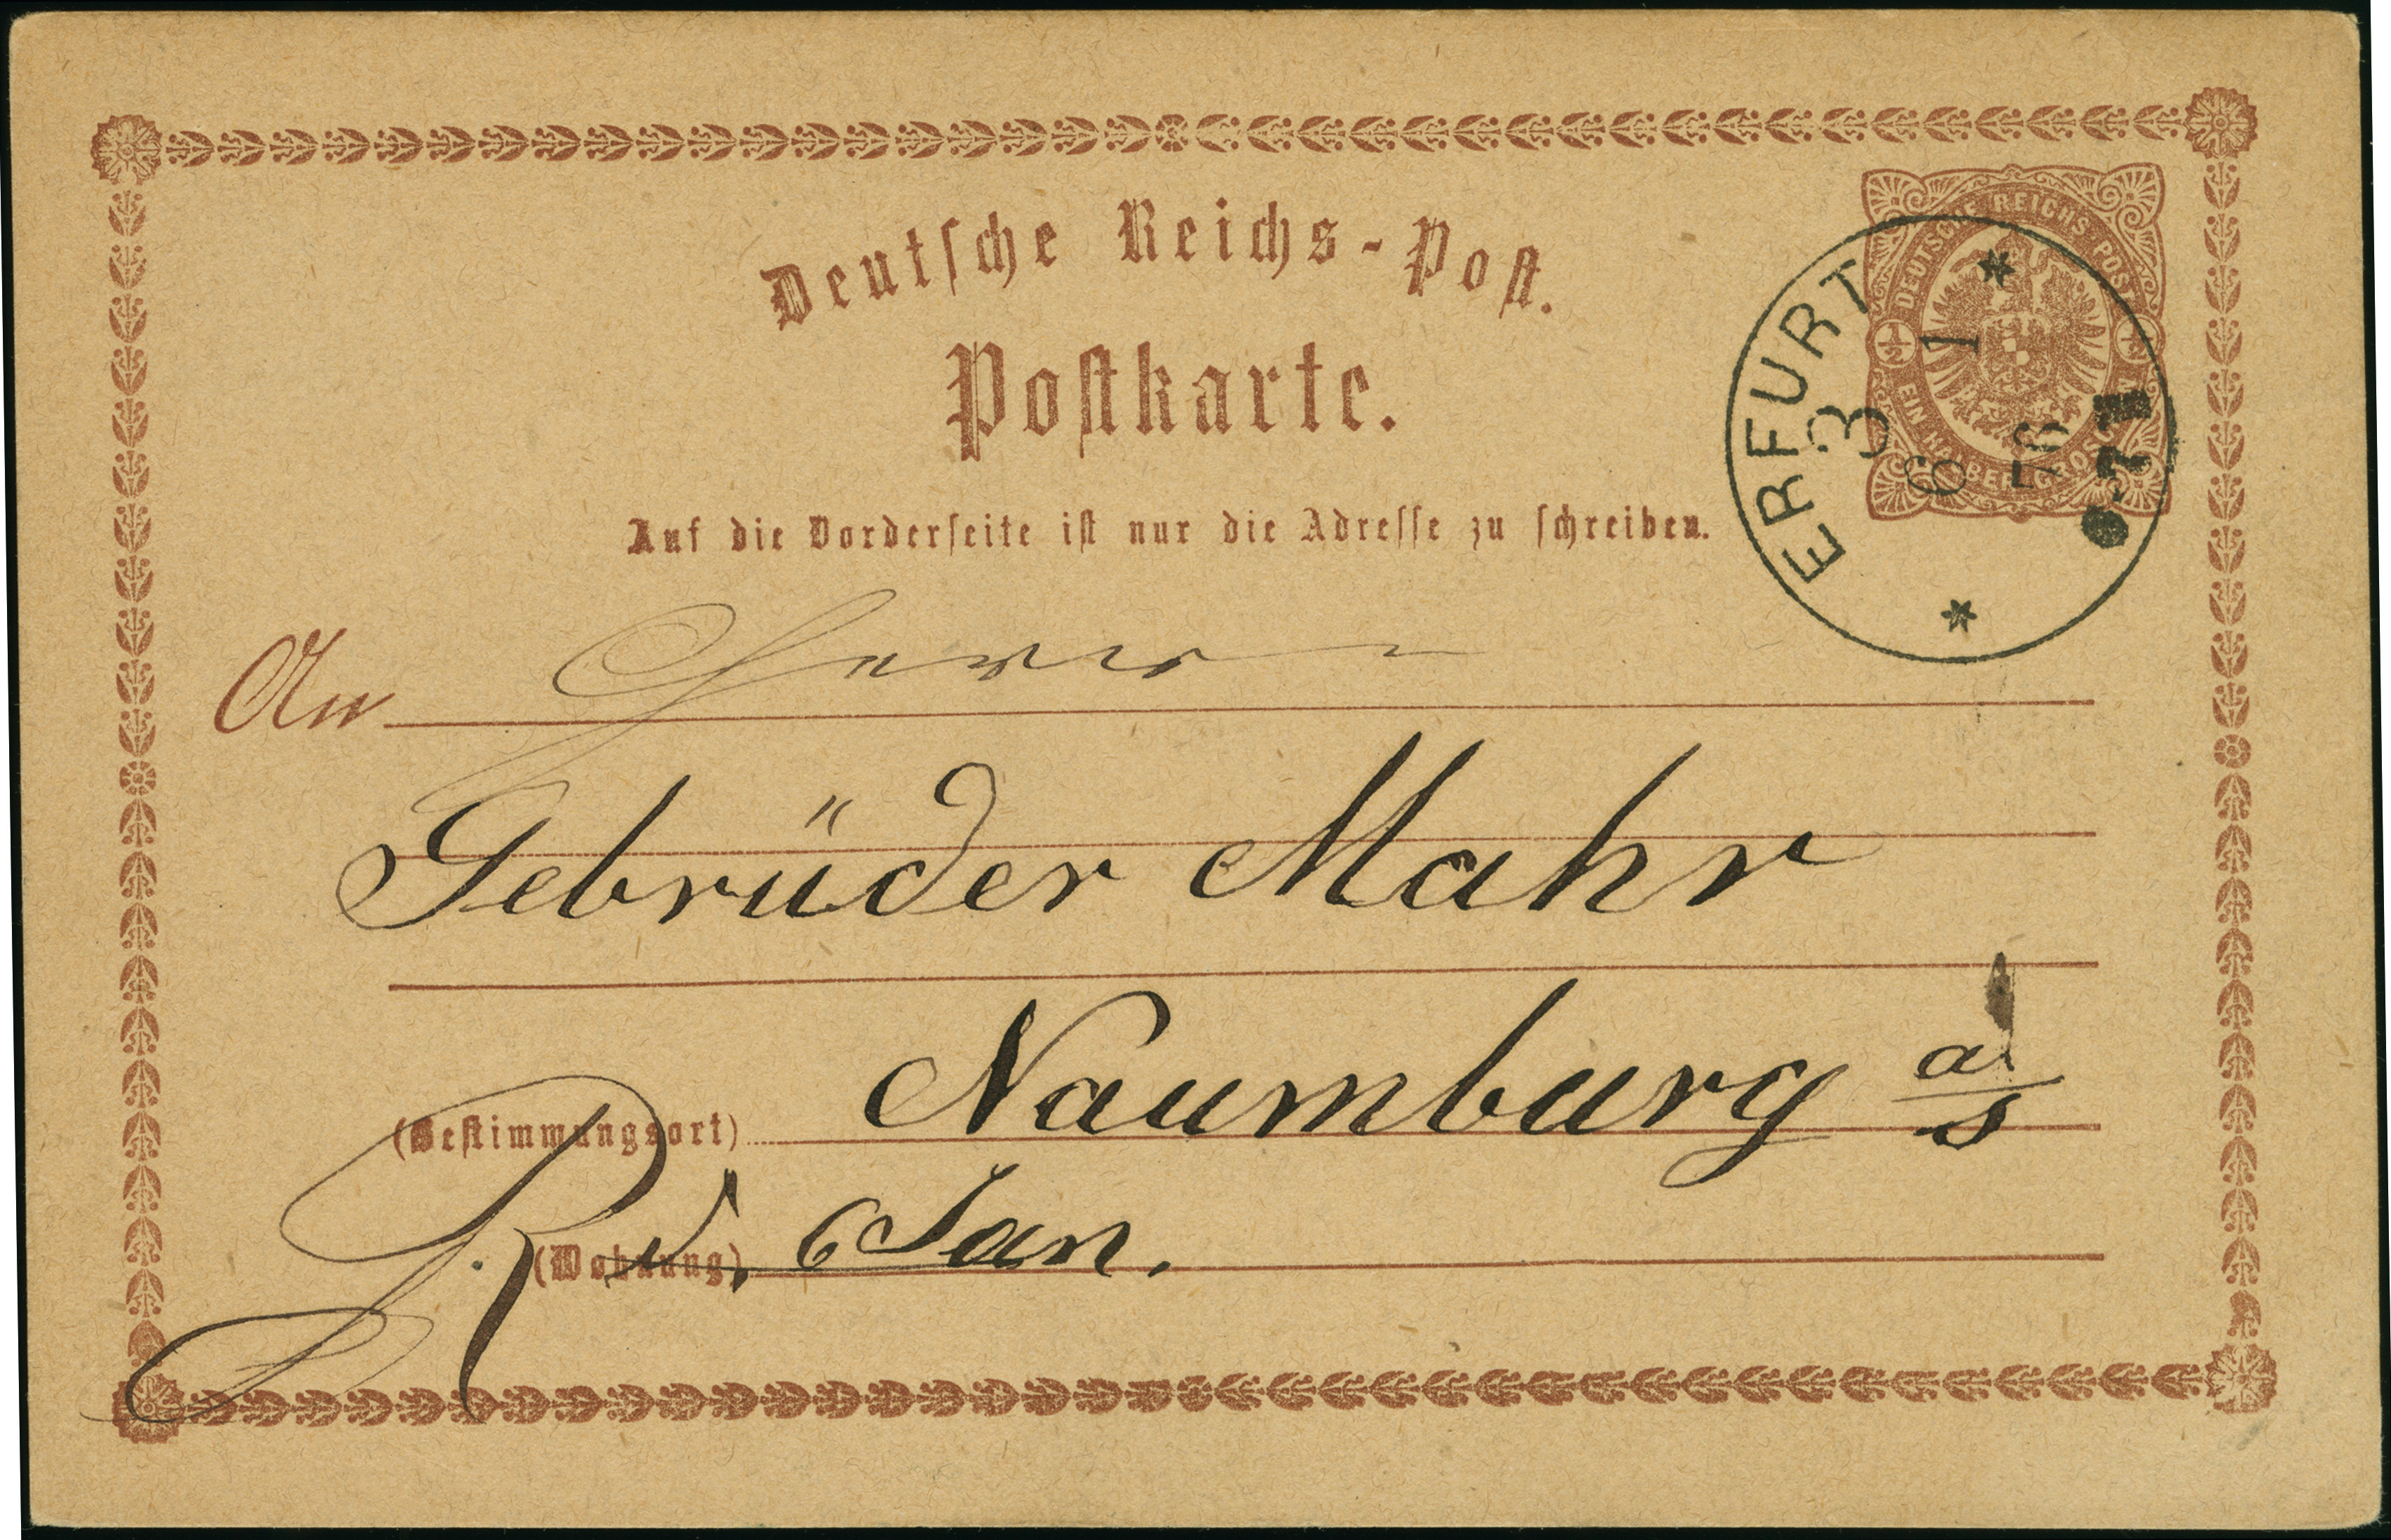 Deutsche Reichs-Post.
Postkarte.
Auf die Vorderseite ist nur die Adresse zu schreiben.
DEUTSCHE REICHS-POST
½ ½
EIN HALBER GROSCHEN
ERFURT
3
6 1
76
An Herren
Gebrüder Mahr
Naumburg a/s
(Bestimmungsort)
(Wohnung)
6 Jan.